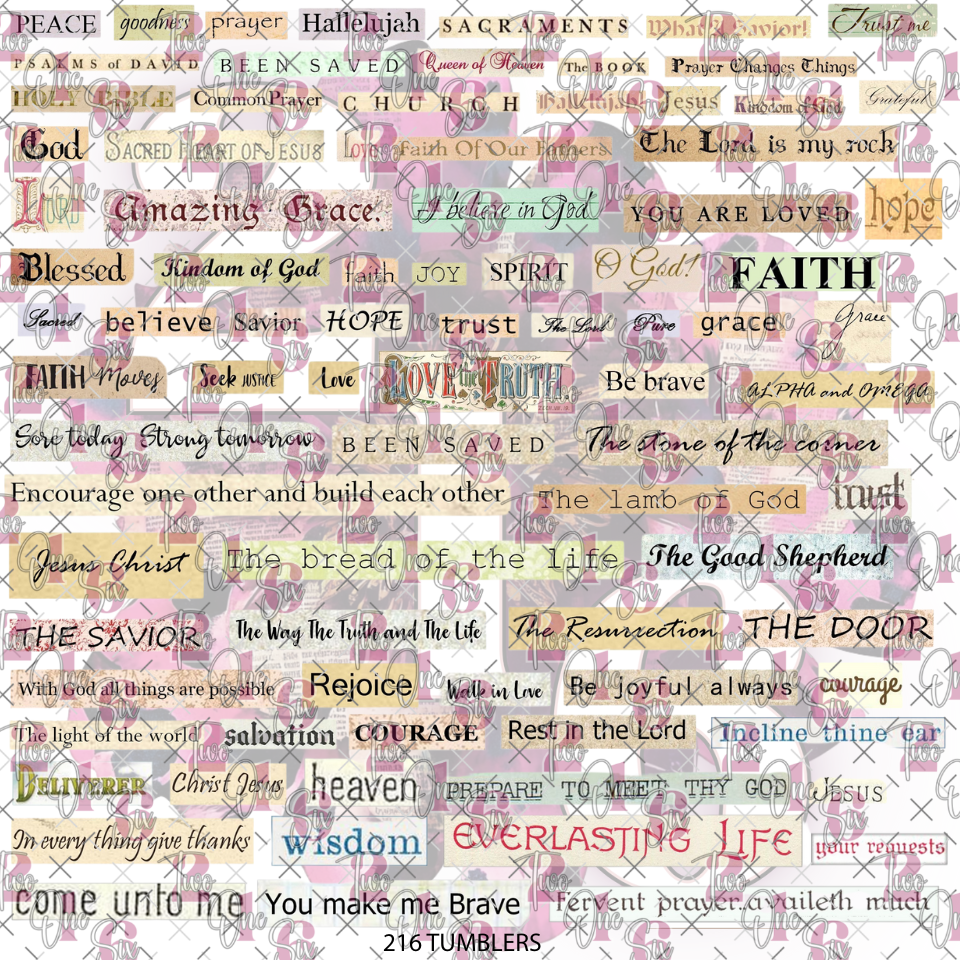 PEACE goodness prayer Hallelujah SACRAMENTS What a Savior! Trust me
PSALMS of DAVID BEEN SAVED Queen of Heaven The BOOK Prayer Changes Things
HOLY BIBLE Common Prayer CHURCH Hallelujah Jesus Kindom of God Grateful
God SACRED HEART OF JESUS Love Faith Of Our Fathers The Lord is my rock
LORD Amazing Grace. I believe in God YOU ARE LOVED hope
Blessed Kindom of God faith JOY SPIRIT O God! FAITH
Sacred believe Savior HOPE trust The Lord Pure grace Grace
FAITH Moves Seek JUSTICE Love LOVE the TRUTH. Be brave ALPHA and OMEGA
Sore today Strong tomorrow BEEN SAVED The stone of the corner
Encourage one other and build each other The lamb of God trust
Jesus Christ The bread of the life The Good Shepherd
THE SAVIOR The Way The Truth and The Life The Resurrection THE DOOR
With God all things are possible Rejoice Walk in Love Be joyful always courage
The light of the world salvation COURAGE Rest in the Lord Incline thine ear
DELIVERER Christ Jesus heaven PREPARE TO MEET THY GOD JESUS
In every thing give thanks wisdom EVERLASTING LIFE your requests
come unto me You make me Brave Fervent prayer availeth much
216 TUMBLERS